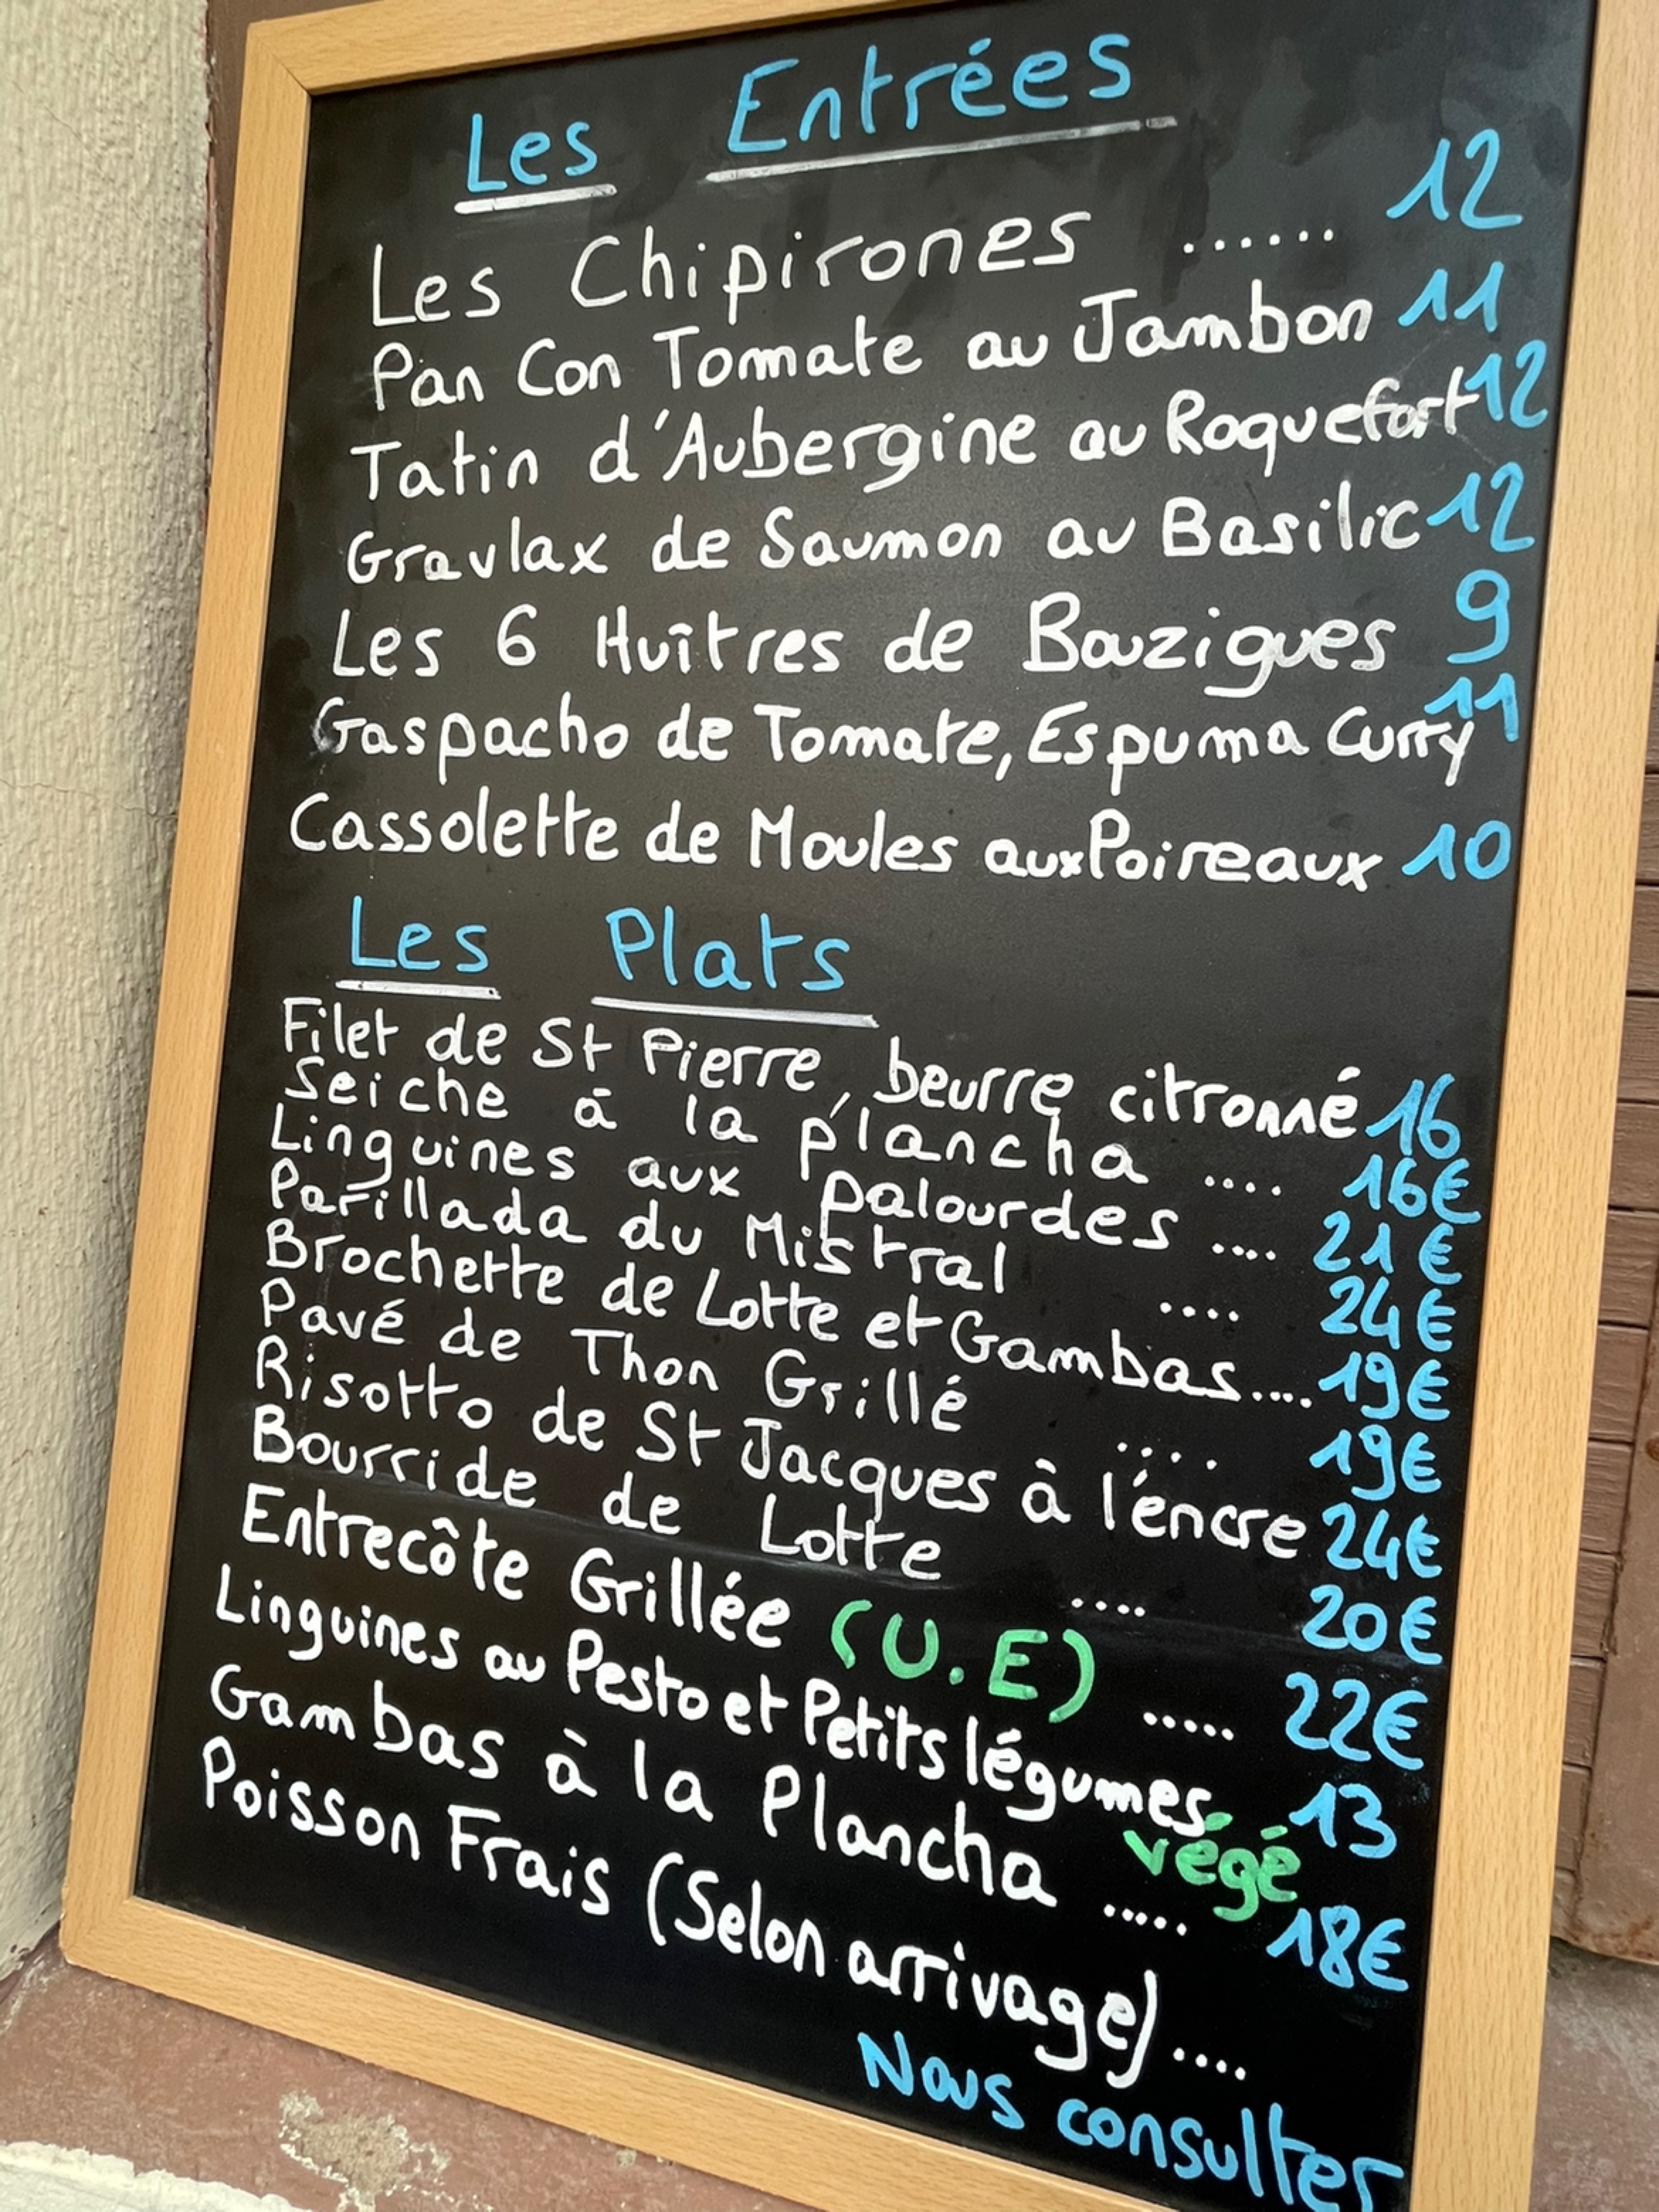 Les Entrées
Les Chipirones ...... 12
Pan Con Tomate au Jambon 11
Tatin d'Aubergine au Roquefort 12
Gravlax de Saumon au Basilic 12
Les 6 Huîtres de Bouzigues 9
Gaspacho de Tomate, Espuma Curry 11
Cassolette de Moules aux Poireaux 10
Les Plats
Filet de St Pierre, beurre citronné 16
Seiche à la plancha .... 16€
Linguines aux palourdes .... 21€
Parillada du Mistral .... 24€
Brochette de Lotte et Gambas.... 19€
Pavé de Thon Grillé .... 19€
Risotto de St Jacques à l'encre 24€
Bourride de Lotte .... 20€
Entrecôte Grillée (U.E) ..... 22€
Linguines au Pesto et Petits légumes 13
végé
Gambas à la Plancha ..... 18€
Poisson Frais (Selon arrivage) ....
Nous consulter